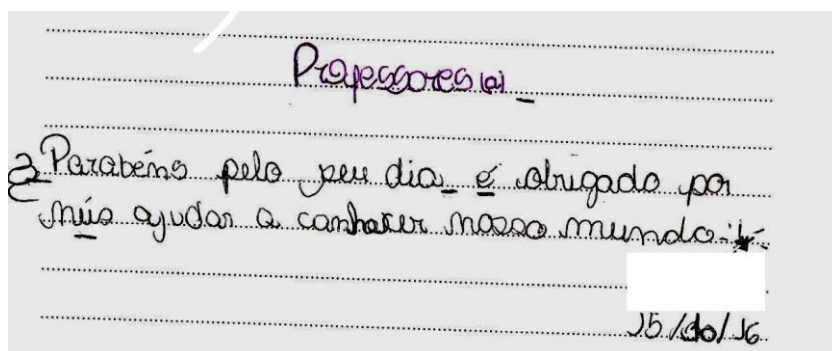 Professores(a)
Parabéns pelo seu dia é obrigado por
nús ajudar a conhecer nosso mundo.
15/10/16